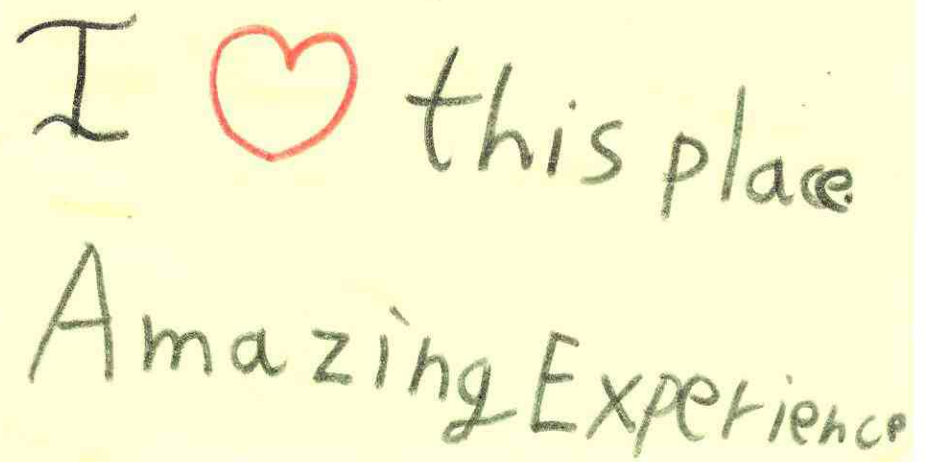 I ♡ this place.
Amazing Experience